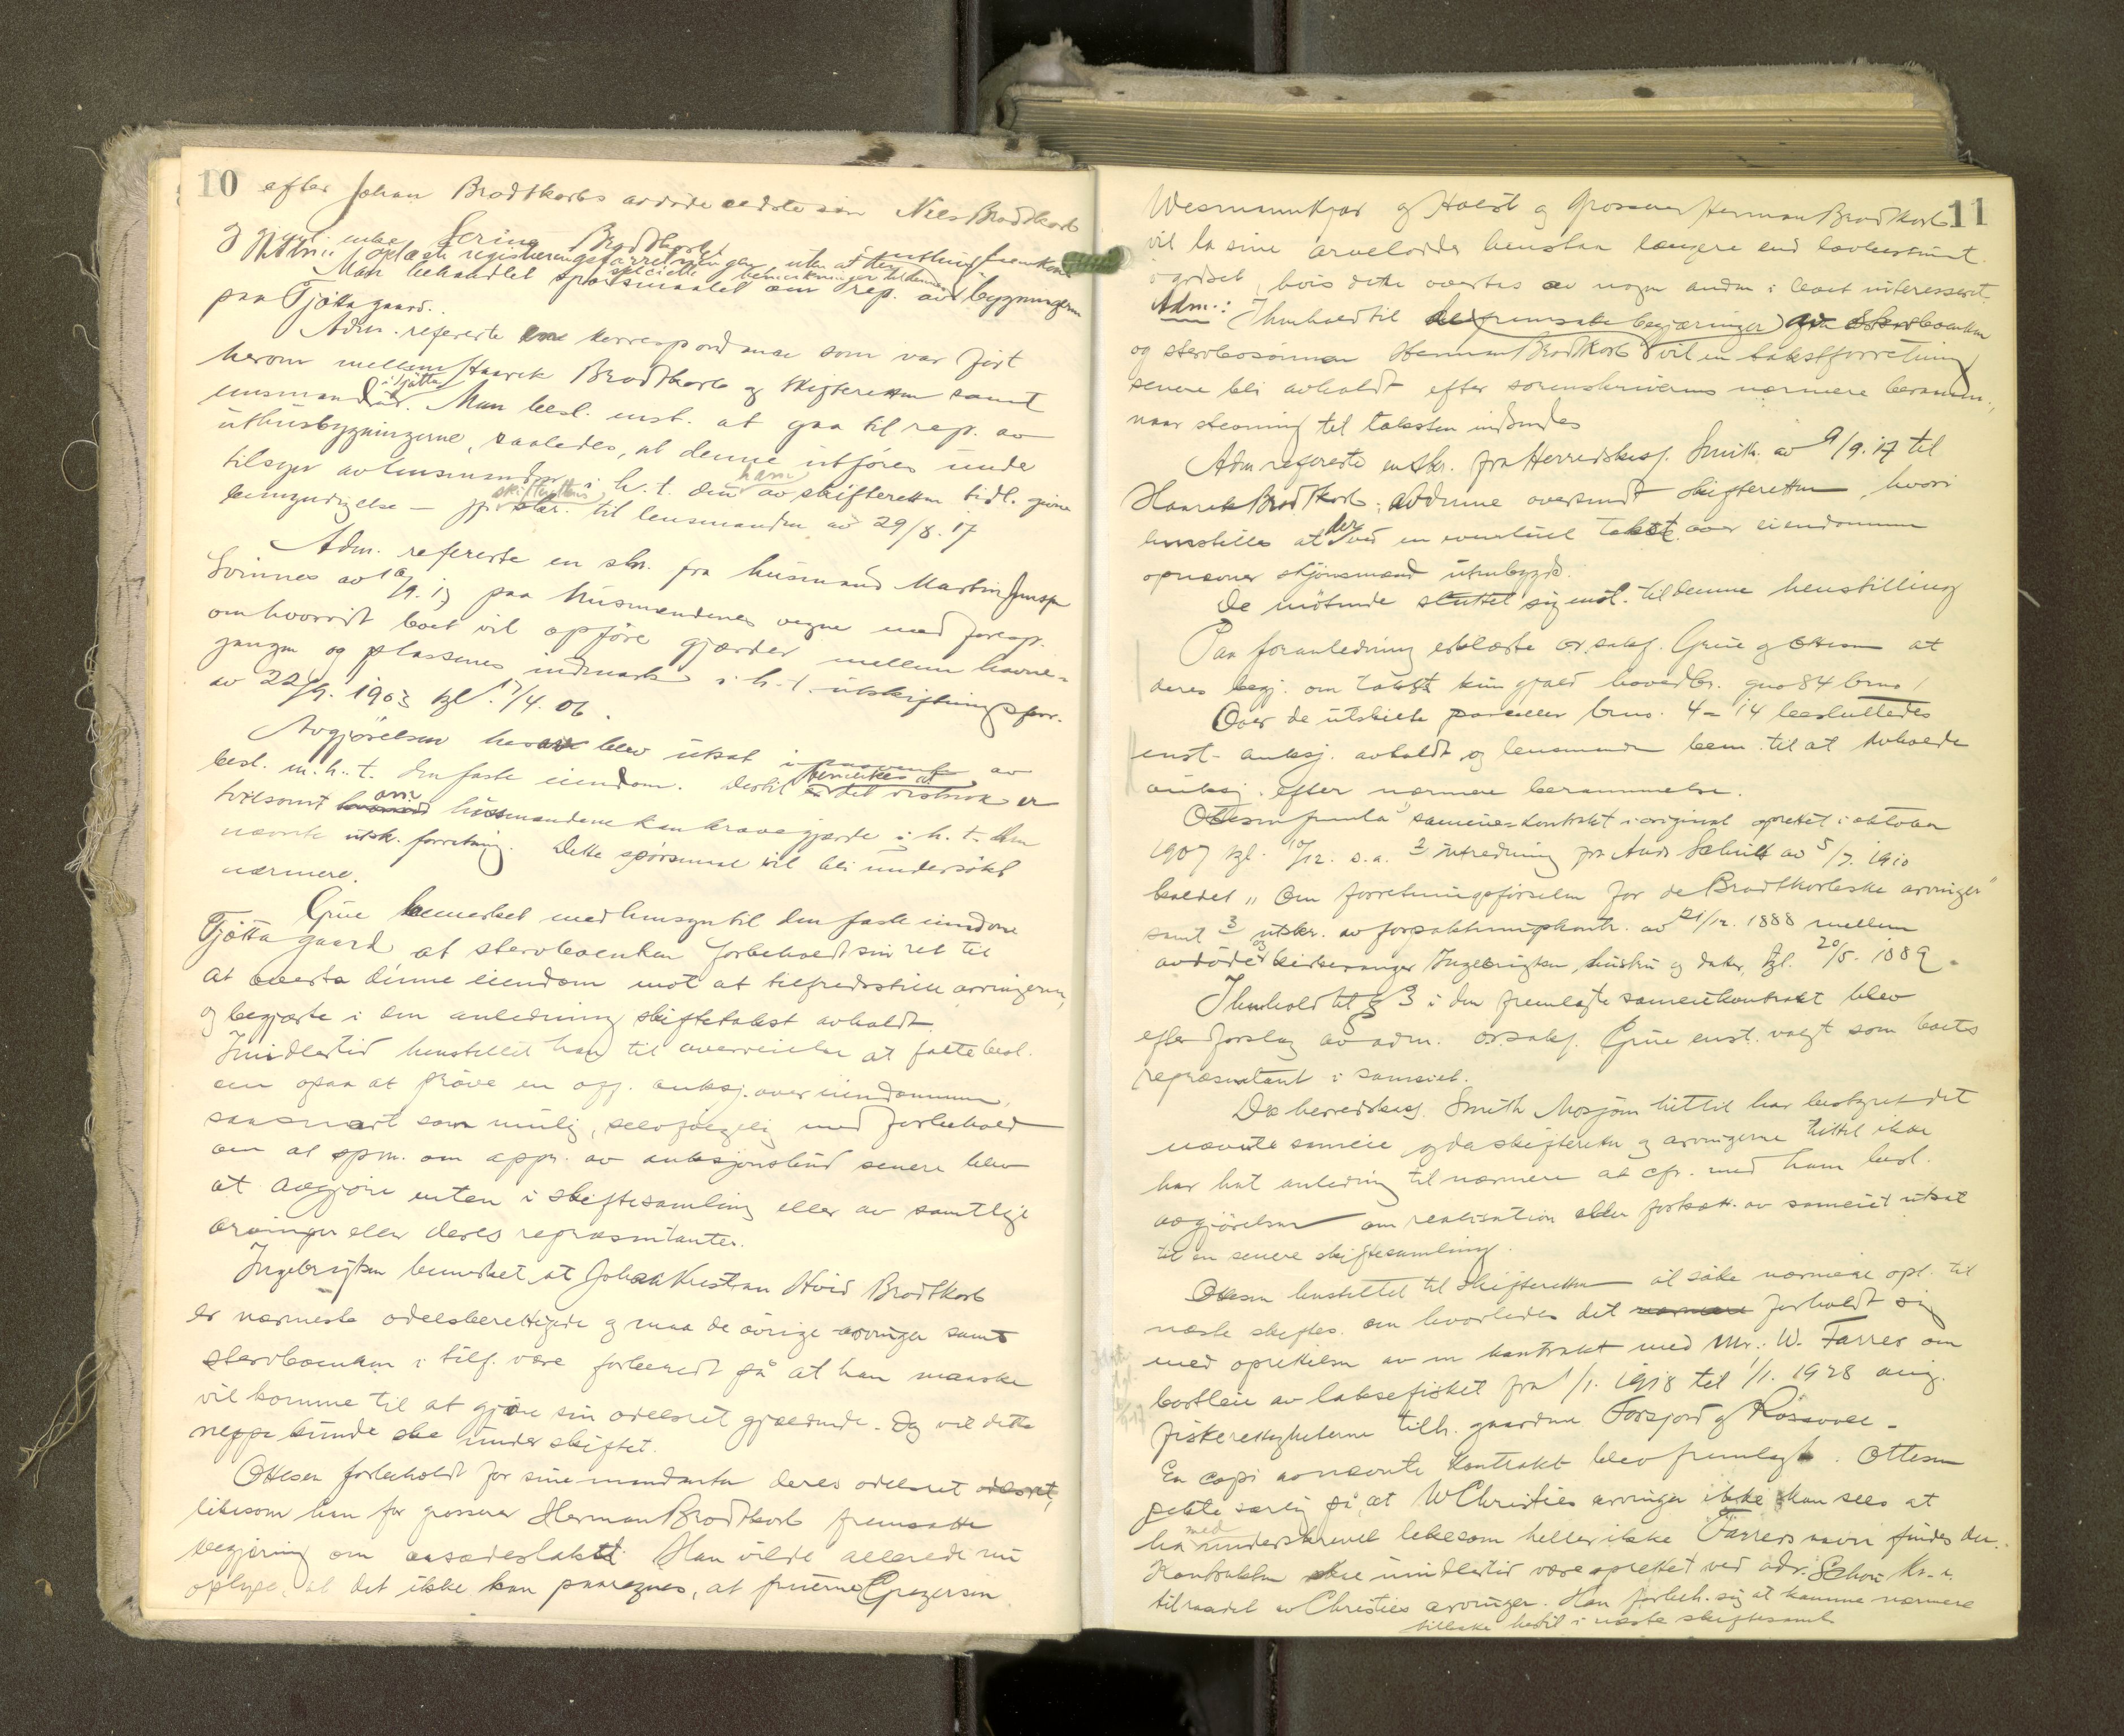 10 efter Johan Brodtkorbs avdöde ældste sön Nils Brodtkorb
og gjenl. enke Serine Brodtkorb.
Adm. oplæste registreringsforretningen uten at der
specielle bemerkninger til denne fremkom
Man behandlet spörsmaalet om rep. av bygningerne
paa Tjötta gaard.
Adm. refererte korrespondance som var fört
herom mellem Haarek Brodtkorb og skifteretten samt
lensmanden i Tjötta. Man besl. enst. at gaa til rep. av
uthusbygningerne, saaledes, at denne utföres under
tilsyn av lensmanden i h. t. den ham av skifteretten tidl. givne
bemyndigelse – jfr. skifterettens skr. til lensmanden av 29/8. 17
Adm. refererte en skr. fra husmand Martin Jensen
Svinnes av 1/9. 17 paa husmændenes vegne med foresp.
om hvorvidt boet vil opföre gjærder mellem havne-
gangen og plassenes indmark i h. t. utskiftningsforr.
av 22/9. 1903 tgl. 17/4. 06.
Avgjörelsen herav blev utsat i paavente av
besl. m. h. t. den faste eiendom. Dertil bemerkes at det visstnok er
tvilsomt om husmændene kan kræve gjærde i h. t. den
nævnte utsk. forretning. Dette spörsmaal vil bli undersökt
nærmere.
Grüe bemerket med hensyn til den faste eiendom
Tjötta gaard, at stervboenken forbeholdt sin ret til
at overta denne eiendom mot at tilfredsstille arvingerne,
og begjærte i den anledning skiftetakst avholdt.
Imidlertid henstillet han til overveielse at fatte besl.
om ogsaa at pröve en off. auksj. over eiendommen,
saasnart som mulig, selvfölgelig med forbehold
om at spm. om appr. av auksjonsbud senere blev
at avgjöre enten i skiftesamling eller av samtlige
arvinger eller deres repræsentanter.
Ingebrigtsen bemerket, at Johan Kristian Hvid Brodtkorb
er nærmeste odelsberettigede og maa de övrige arvinger samt
stervboenken i tilf. være forberedt på at han maaske
vil komme til at gjöre sin odelsret gjældende. Dog vil dette
neppe kunde ske under skiftet.
Ottesen forbeholdt for sine mandanter deres odelsret odelsret,
likesom han for grosserer Herman Brodtkorb fremsatte
begjæring om aasædestakst. Han vilde allerede nu
oplyse, at det ikke kan paaregnes, at fruerne Gregersen
11
Wesmannkjær og Holst og grosserer Herman Brodtkorb
vil la sine arvelodder henstaa længere end lovbestemt
i godset, hvis dette overtas av nogen anden i boet interessert.
Adm.: I henhold til de fremsatte begjæringer av stervboenken
og stervbosönnen Herman Brodtkorb vil en takstforretning
senere bli avholdt efter sorenskriverens nærmere beramm.,
naar stevning til taksten indsendes
Adm. refererte en skr. fra Herredskasj. Smith av 9/9. 17 til
Haarek Brodtkorb, av denne oversendt skifteretten, hvori
henstilles at der ved en eventuel takst over eiendommen
opnævnes skjönsmænd utenbygds.
De mötende sluttet sig enst. til denne henstilling
Paa foranledning erklærte o.r.sakf. Grüe og Ottesen at
deres begj. om takst kun gjald hovedbr. gno 84 brno 1
Over de utskilte parceller brno. 4 – 14 besluttedes
enst. auksj. avholdt og lensmanden bem. til at avholde
auksj. efter nærmere berammelse.
Ottesen fremla 1) sameie-kontrakt i original oprettet i oktober
1907 tgl. 10/12. s. a. 2 utredning fra Anders Schult av 5/7. 1910
kaldet "Om forretningsförselen for de Brodtkorbske arvinger"
samt 3 utskr. av forpaktningskontr. av 21/12. 1888 mellem
avdöde og kirkesanger Ingebrigtsen, hustru og datter, tgl. 20/5. 1889.
I henhold til § 3 i den fremlagte sameiekontrakt blev
efter forslag av adm. o.r.sakf. Grüe enst. valgt som boets
repræsentant i sameiet.
Da herredskasj. Smith Mosjöen hittil har bestyret det
nævnte sameie og da skifteretten og arvingerne hittil ikke
har hat anledning til nærmere at cfr. med ham besl.
avgjörelsen om realisation eller fortsatt. av sameiet utsat
til en senere skiftesamling.
Ottesen henstillet til skifteretten at söke nærmere opl. til
næste skiftes. om hvorledes det nærmere forholdt sig
med oprettelsen av en kontrakt med Mr. W. Farrer om
bortleie av laksefisket fra 1/1. 1918 til 1/1. 1928 ang.
fiskerettighetene tilh. gaardene Forsjord og Rössvoll –
En copi av nævnte kontrakt blev fremlagt. Ottesen
pekte særlig på, at W Christies arvinger ikke kan sees at
ha med underskrevet likesom heller ikke Farrers navn findes der.
Kontrakten skal imidlertid være oprettet ved adv. Schou Kr.a.
tilraadet av Christies arvinger. Han forbeh. sig at komme nærmere
tilbake hertil i næste skiftesaml.